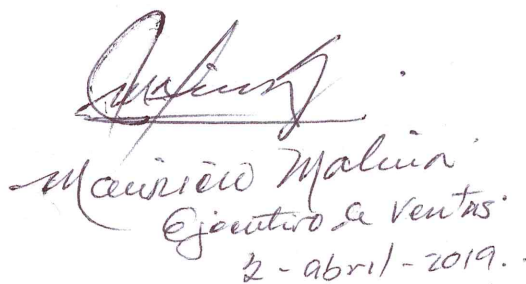 Mauricio Molina
Ejecutivo de Ventas
2-abril-2019.